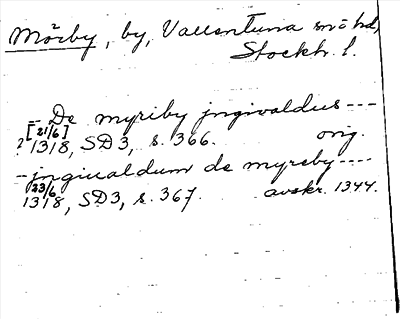 Mörby, by, Vallentuna sn o hd,
Stockh. l.
-- De myriby jngivaldus ----
[21/6]
? 1318, SD3, s. 366. orig.
- jngiualdum de myreby ----
23/6
1318, SD3, s. 367. avskr. 1344.